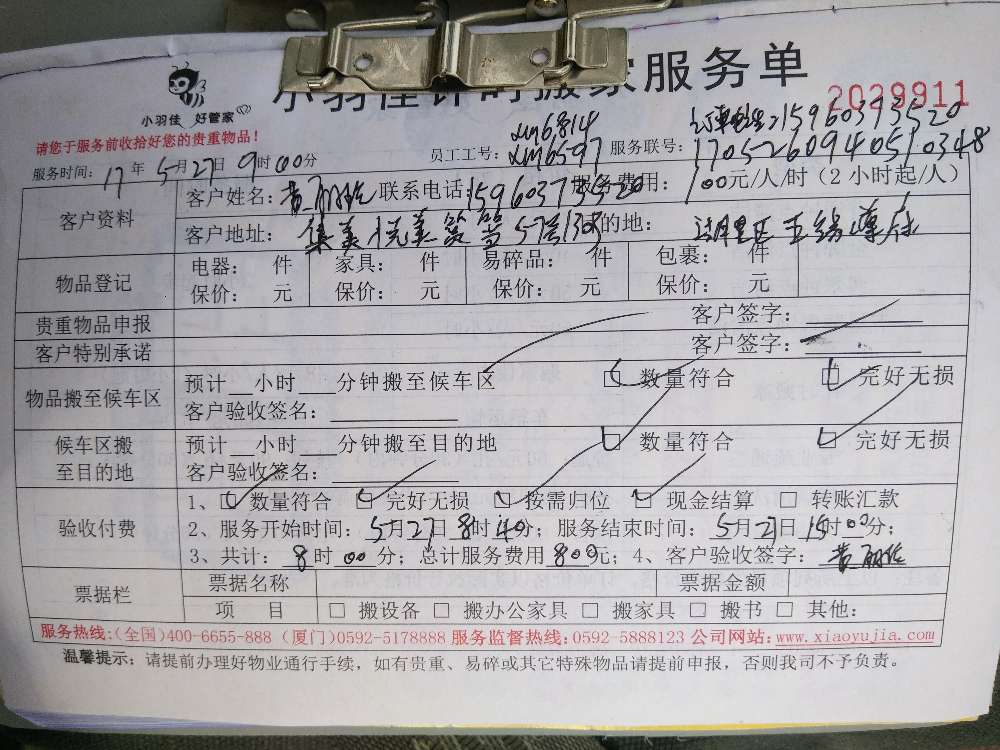 小羽佳计时搬家服务单
小羽佳 好管家
2029911
请您于服务前收拾好您的贵重物品!
xm6814
订单电话:15960373520
员工工号: xm6597 服务联号: 1705260940510348
服务时间: 17 年 5 月 27 日 9 时 00 分
客户资料
客户姓名: 黄丽 联系电话: 15960373520 服务费用: 100 元/人/时(2小时起/人)
客户地址: 集美悦美筼筜 目的地: 湖里区五缘尊府
物品登记
电器: 件 家具: 件 易碎品: 件 包裹: 件
保价: 元 保价: 元 保价: 元 保价: 元
贵重物品申报 客户签字:
客户特别承诺 客户签字:
物品搬至候车区
预计__小时___分钟搬至候车区 ☑ 数量符合 ☑ 完好无损
客户验收签名:
候车区搬至目的地
预计__小时___分钟搬至目的地 ☑ 数量符合 ☑ 完好无损
客户验收签名:
验收付费
1、☑ 数量符合 ☑ 完好无损 ☑ 按需归位 ☑ 现金结算 □ 转账汇款
2、服务开始时间: 5 月 27 日 8 时 40 分; 服务结束时间: 5 月 27 日 15 时 00 分;
3、共计: 8 时 00 分; 总计服务费用 800 元; 4、客户验收签字: 黄丽
票据栏
票据名称 票据金额
项 目 □ 搬设备 □ 搬办公家具 □ 搬家具 □ 搬书 □ 其他:
服务热线:(全国)400-6655-888 (厦门)0592-5178888 服务监督热线:0592-5888123 公司网站:www.xiaoyujia.com
温馨提示: 请提前办理好物业通行手续, 如有贵重、易碎或其它特殊物品请提前申报, 否则我司不予负责。